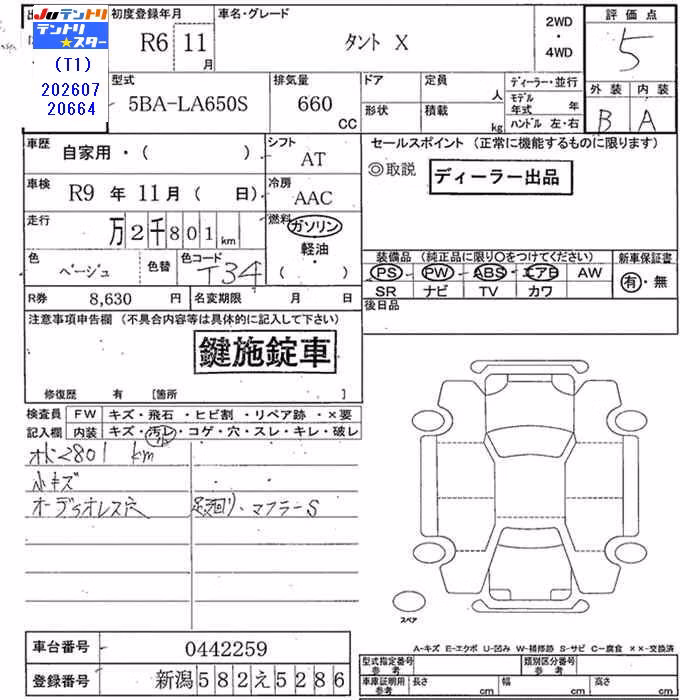 Juテントリ
テントリ★スター
(T1)
202607
20664
初度登録年月
R6 11月
車名・グレード
タント X
2WD・4WD
評価点
5
型式
5BA-LA650S
排気量
660 CC
ドア
形状
定員 人
積載 kg
ディーラー・並行
モデル年式 年
ハンドル 左・右
外装 内装
B A
車歴
自家用・( )
シフト
AT
車検
R9 年 11月 ( 日)
冷房
AAC
走行
万2千801km
燃料
ガソリン
軽油
・( )・
色
ベージュ
色替
色コード
T34
R券 8,630 円
名変期限 月 日
セールスポイント (正常に機能するものに限ります)
◎取説
ディーラー出品
装備品 (純正品に限り○をつけてください)
新車保証書
PS PW ABS エアB AW
有・無
SR ナビ TV カワ
後日品
注意事項申告欄 (不具合内容等は具体的に記入して下さい)
鍵施錠車
修復歴 有 [箇所 ]
検査員記入欄
FW キズ・飛石・ヒビ割・リペア跡・×要
内装 キズ・汚れ・コゲ・穴・スレ・キレ・破レ
2801 km
小キズ
オーディオレス穴
足廻り、マフラーS
スペア
A-キズ E-エクボ U-凹み W-補修跡 S-サビ C-腐食 ××-交換済
車台番号 0442259
登録番号 新潟582え5286
型式指定番号 参考
類別区分番号 参考
車庫証明用 参考
長さ cm
幅 cm
高さ cm